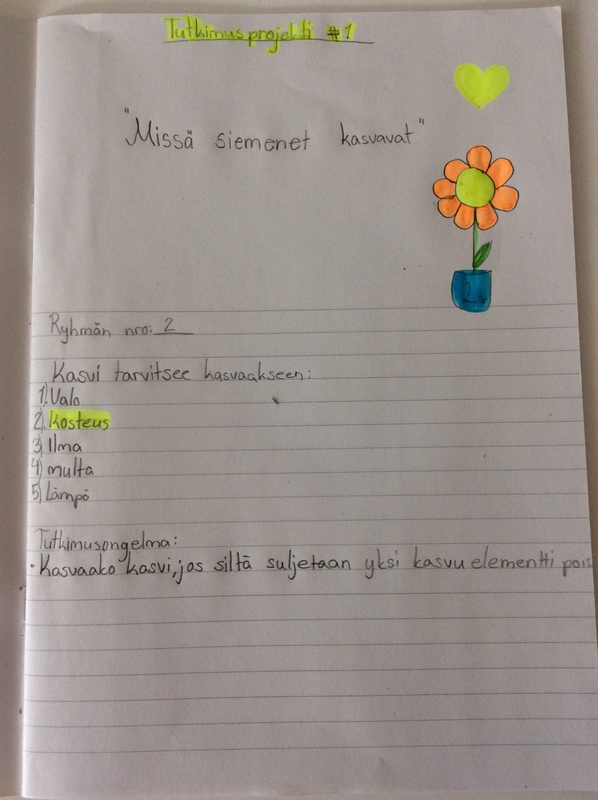 Tutkimusprojekti #1
"Missä siemenet kasvavat"
Ryhmän nro: 2
Kasvi tarvitsee kasvaakseen:
1. Valo
2). kosteus
3) Ilma
4) multa
5) Lämpö
Tutkimusongelma:
• Kasvaako kasvi, jos siltä suljetaan yksi kasvuelementti pois